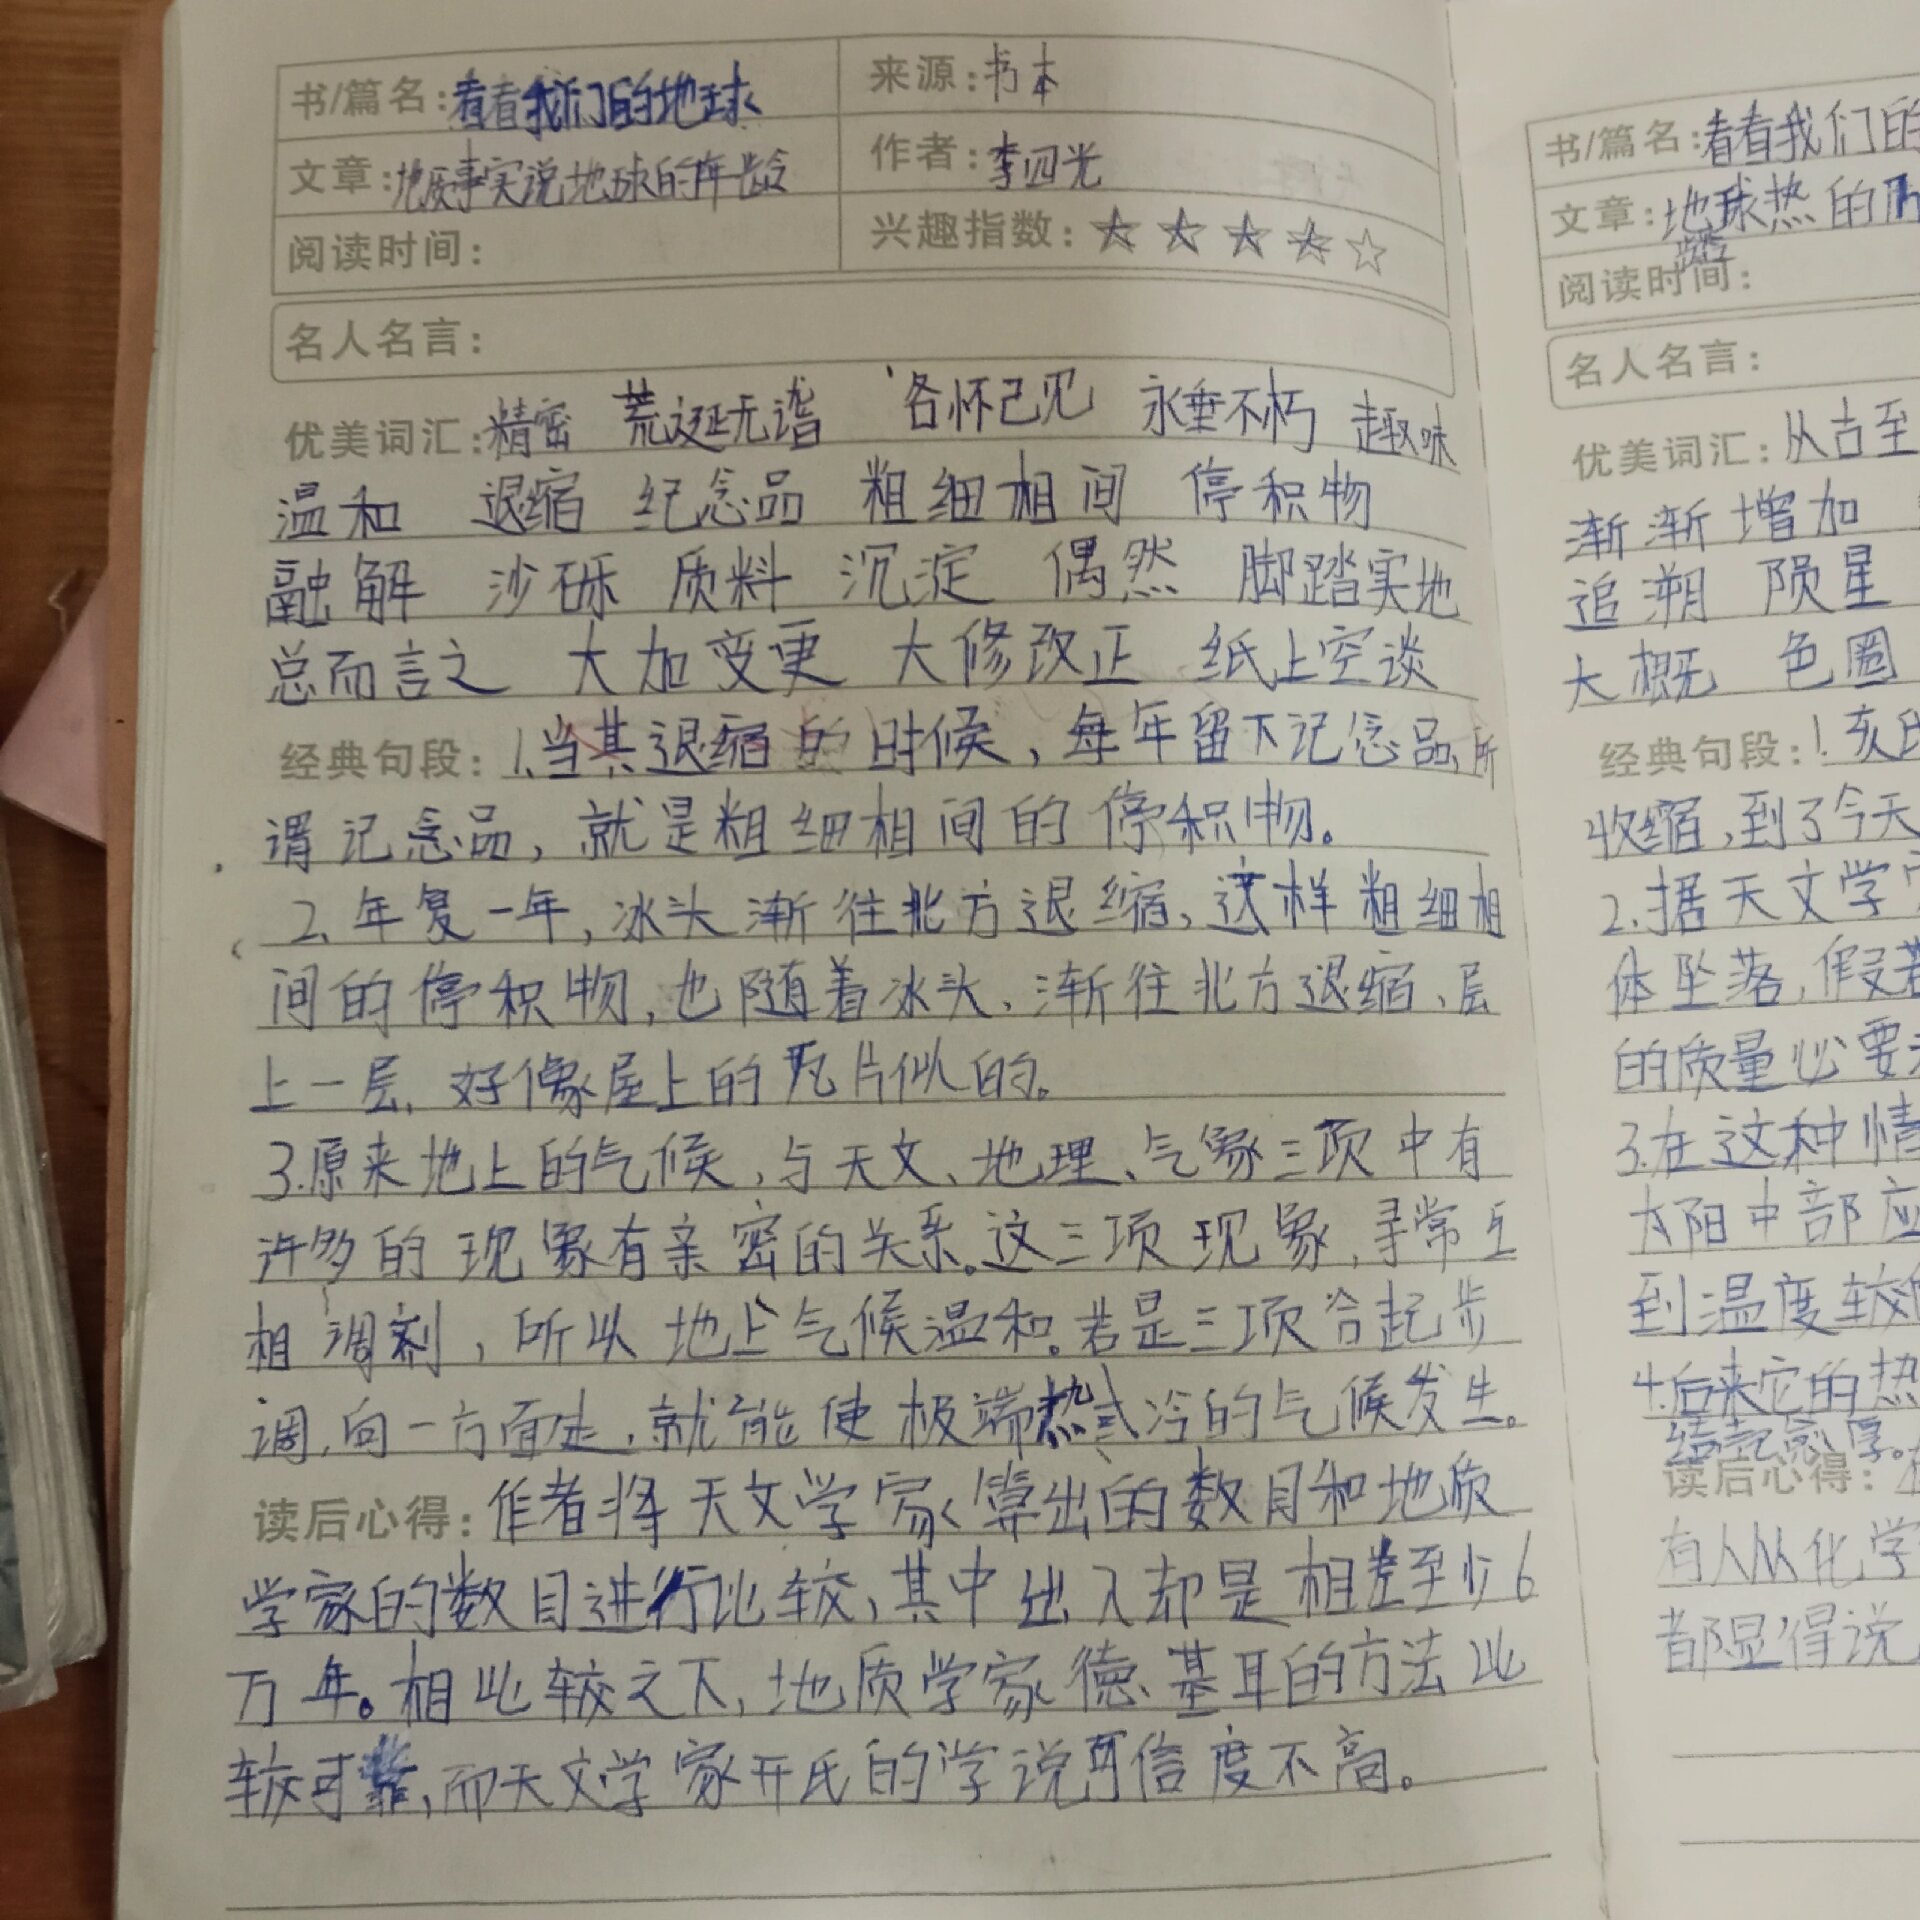 书/篇名：看看我们的地球
来源：书本
文章：地质事实说地球的年龄
作者：李四光
阅读时间：
兴趣指数：☆☆☆☆☆
名人名言：
优美词汇：精密 荒诞无谱 各怀己见 永垂不朽 趣味
温和 退缩 纪念品 粗细相间 停积物
融解 沙砾 质料 沉淀 偶然 脚踏实地
总而言之 大加变更 大修改正 纸上空谈
经典句段：1.当其退缩的时候，每年留下记念品，所
谓记念品，就是粗细相间的停积物。
2.年复一年，冰头渐往北方退缩，这样粗细相
间的停积物，也随着冰头、渐往北方退缩、层
上一层，好像屋上的瓦片似的。
3.原来地上的气候，与天文、地理、气象三项中有
许多的现象有亲密的关系。这三项现象，寻常互
相调剂，所以地上气候温和。若是三项合起步
调，向一方面走，就能使极端热或冷的气候发生。
读后心得：作者将天文学家算出的数目和地质
学家的数目进行比较，其中出入却是相差至少6
万年。相比较之下，地质学家德基耳的方法比
较可靠，而天文学家开氏的学说可信度不高。
书/篇名：看看我们的
文章：地球热的
阅读时间：
名人名言：
优美词汇：从古至
渐渐增加
追溯 陨星
大概 色圈
经典句段：1.
收缩，到了今天
2.据天文学
体坠落，假若
的质量必要
3.在这种情
太阳中部应
到温度较
4.后来它的热
结壳愈厚。
读后心得：
有人从化学
都显得说